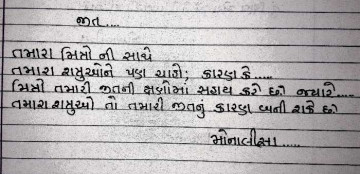 જીત....
તમારા મિત્રો ની સાથે
તમારા શત્રુઓને પણ ચાહો; કારણ કે.....
મિત્રો તમારી જીતની ક્ષણોમાં સહાય કરે છે જ્યારે....
તમારા શત્રુઓ તો તમારી જીતનું કારણ બની શકે છે
મોનાલીસા.....